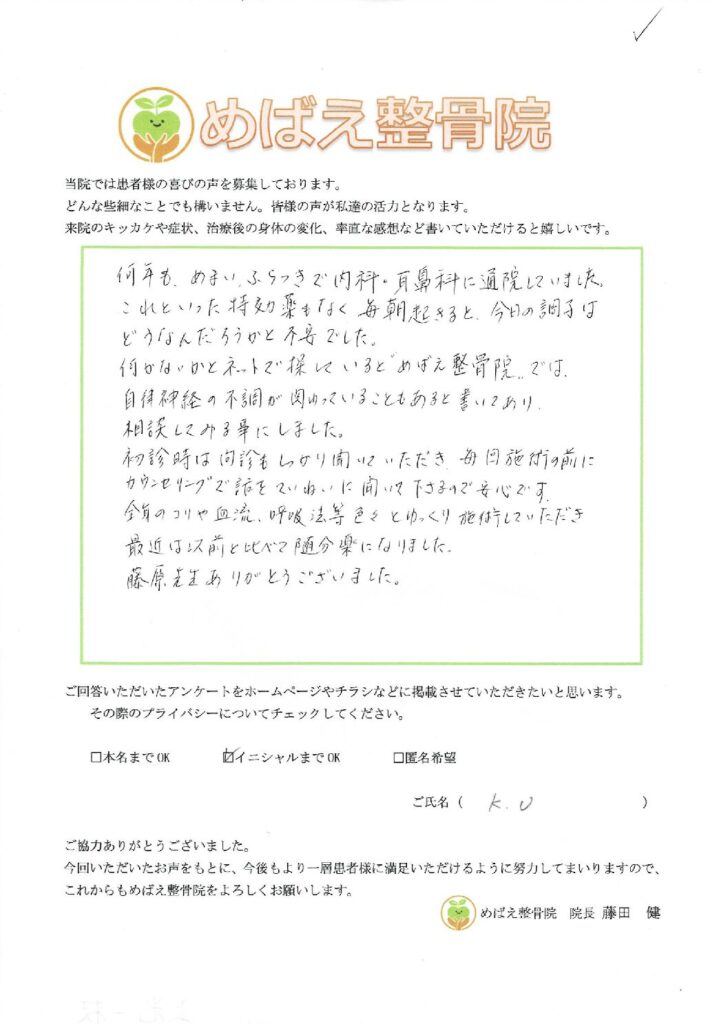 めばえ整骨院
当院では患者様の喜びの声を募集しております。
どんな些細なことでも構いません。皆様の声が私達の活力となります。
来院のキッカケや症状、治療後の身体の変化、率直な感想など書いていただけると嬉しいです。
何年も、めまい、ふらつきで内科・耳鼻科に通院していました。
これといった特効薬もなく毎朝起きると、今日の調子は
どうなんだろうかと不安でした。
何かないかとネットで探していると〝めばえ整骨院〟では、
自律神経の不調が関わっていることもあると書いてあり、
相談してみる事にしました。
初診時は問診もしっかり聞いていただき、毎回施術の前に
カウンセリングで話をていねいに聞いて下さるので安心です。
全身のコリや血流、呼吸法等色々とゆっくり施術していただき
最近は以前と比べて随分楽になりました。
藤原先生ありがとうございました。
ご回答いただいたアンケートをホームページやチラシなどに掲載させていただきたいと思います。
その際のプライバシーについてチェックしてください。
□本名までOK ☑イニシャルまでOK □匿名希望
ご氏名（ K.U ）
ご協力ありがとうございました。
今回いただいたお声をもとに、今後もより一層患者様に満足いただけるように努力してまいりますので、
これからもめばえ整骨院をよろしくお願いします。
めばえ整骨院 院長 藤田 健